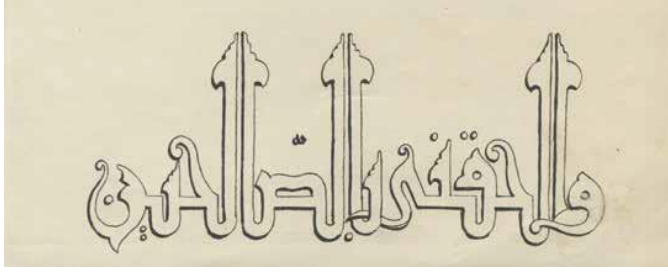 والحقنى بالصّالحين